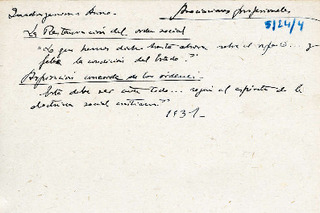 Quadragesimo Anno. Asociaciones profesionales
5/24/4
La Restauración del orden social
"Lo que hemos dicho hasta ahora sobre el ... y
feliz la condición del Estado."
Aspiración concorde de los órdenes.
Esta debe ser ante todo... según el espíritu de la
doctrina social cristiana."
1931-